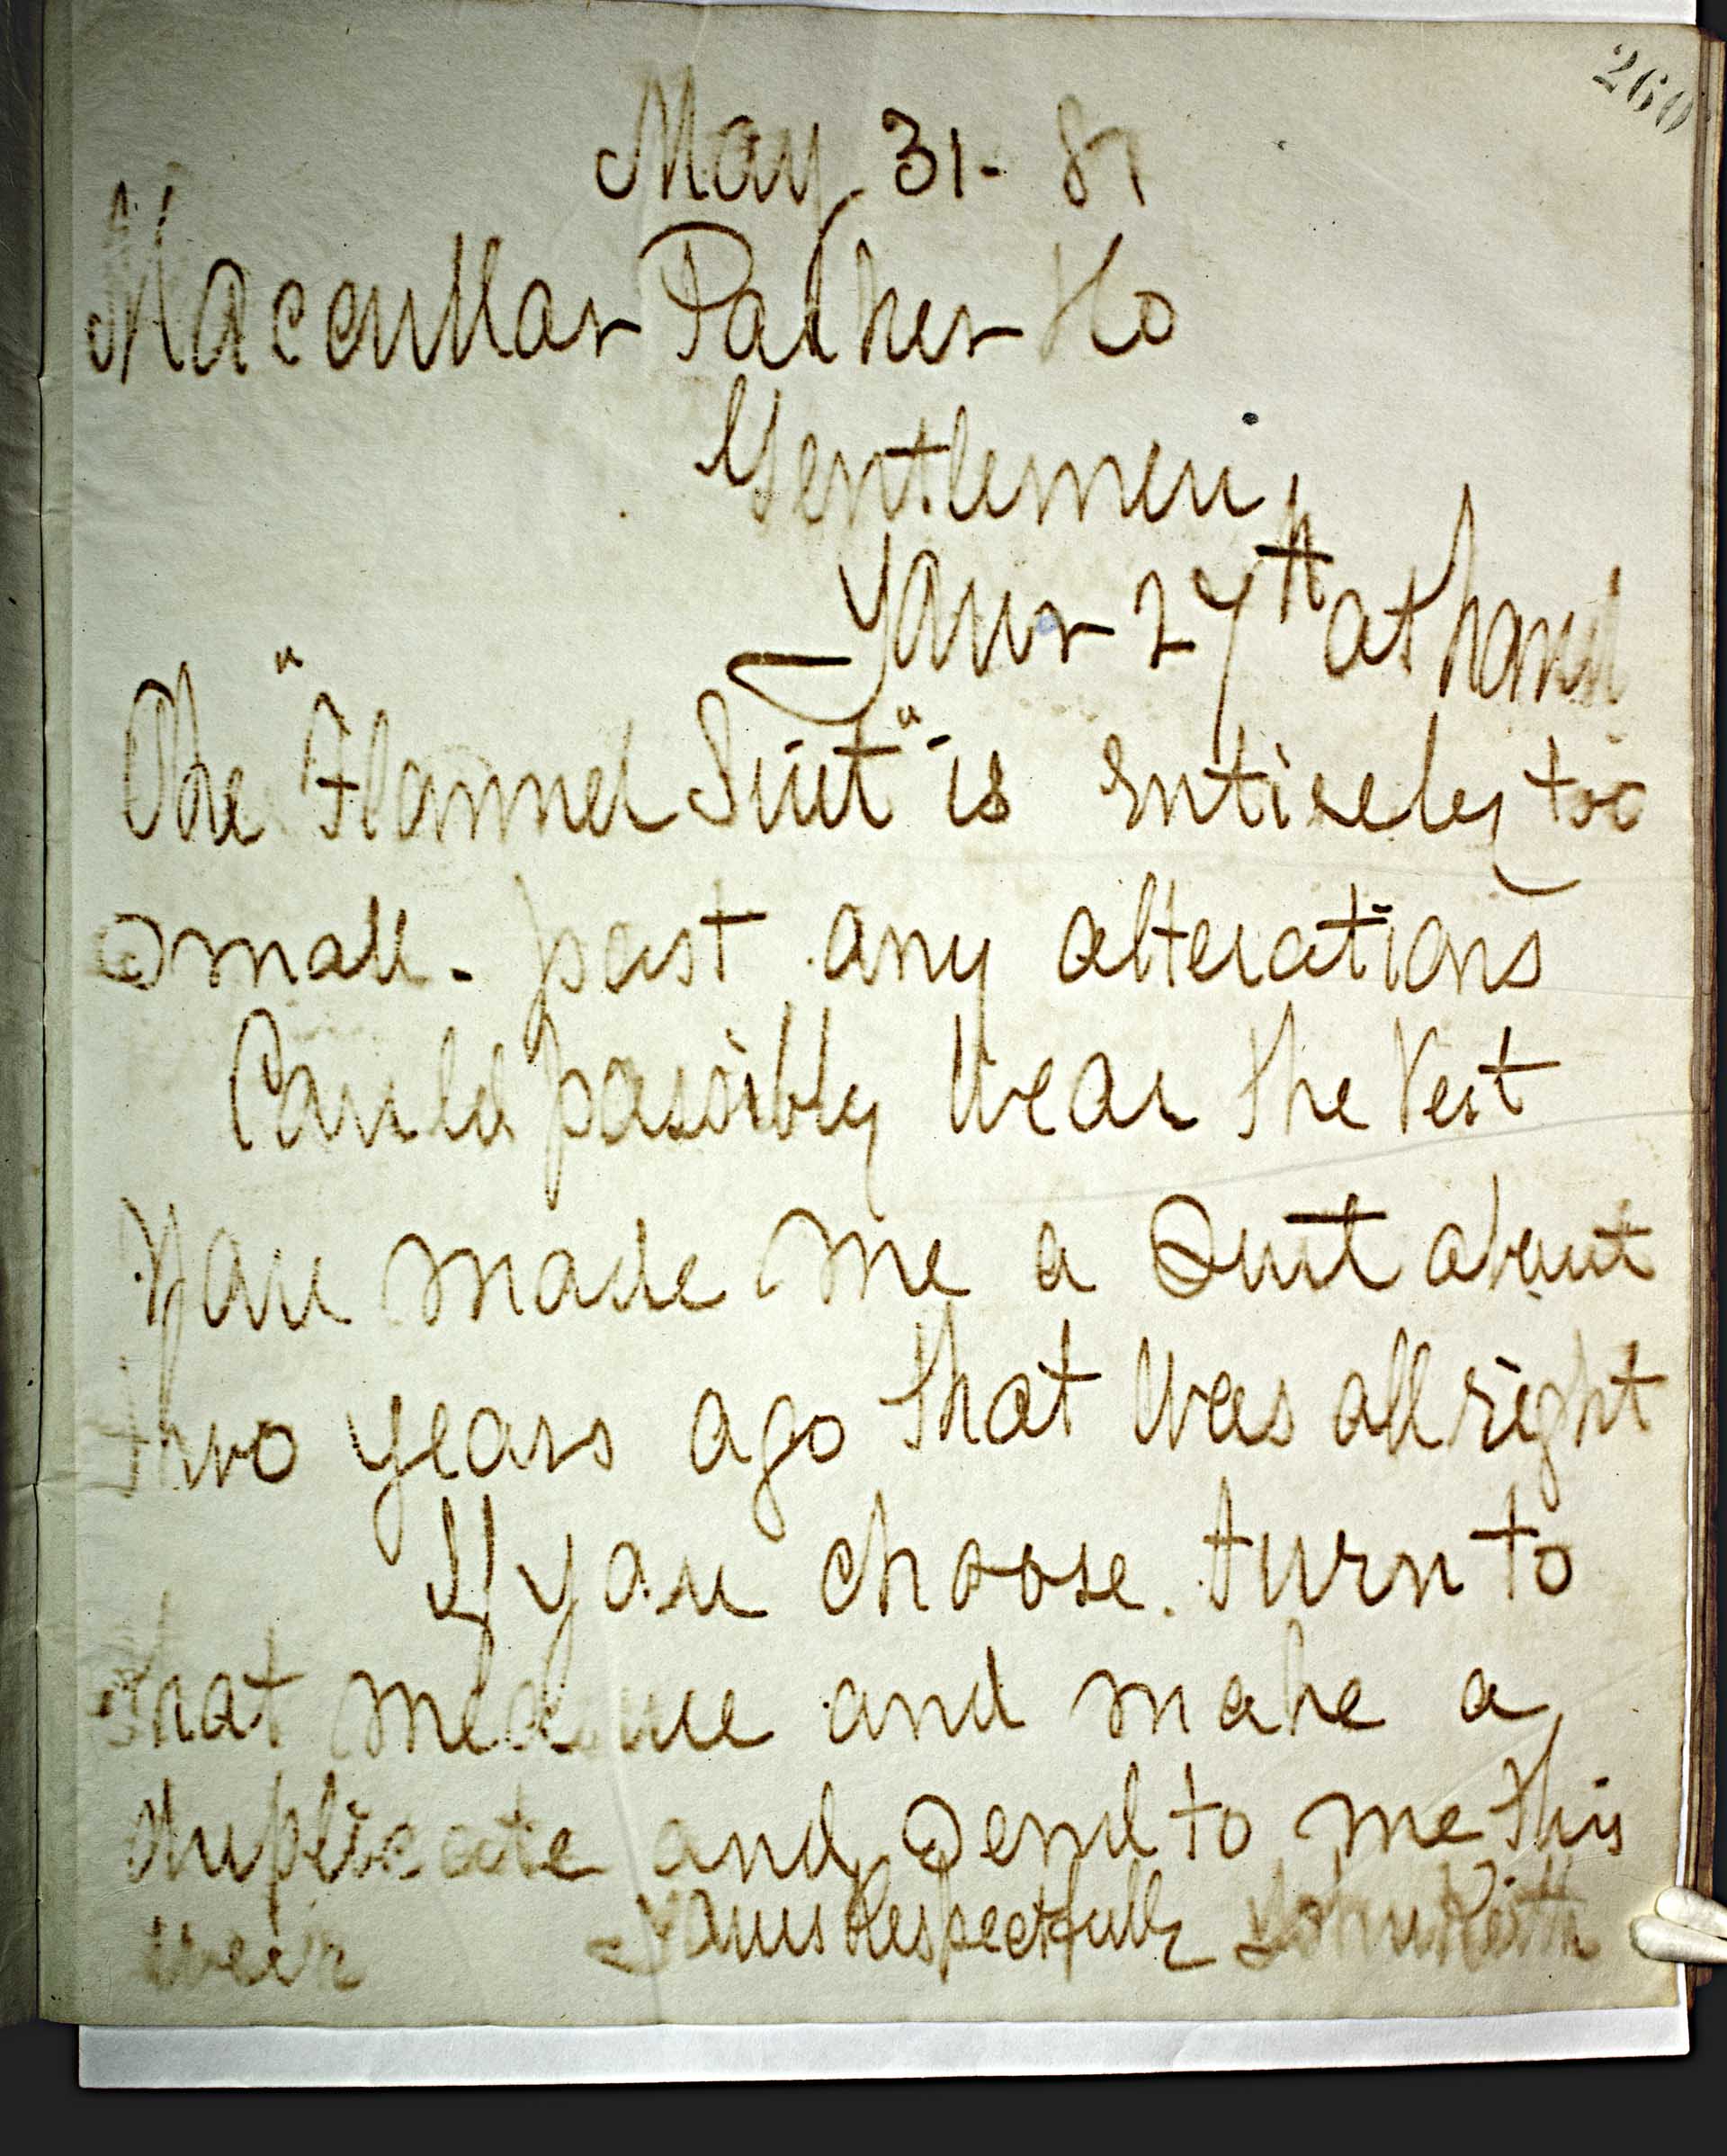 260
May 31- 87
Macullar Parker & Co
Gentlemen,
Your 27th at hand
The "Flannel Suit"- is entirely too
small - past any alterations
Could possibly wear the Vest
You made me a Suit about
two years ago that was all right
If you choose. turn to
that measure and make a
duplicate and send to me this
week Yours Respectfully John Keith